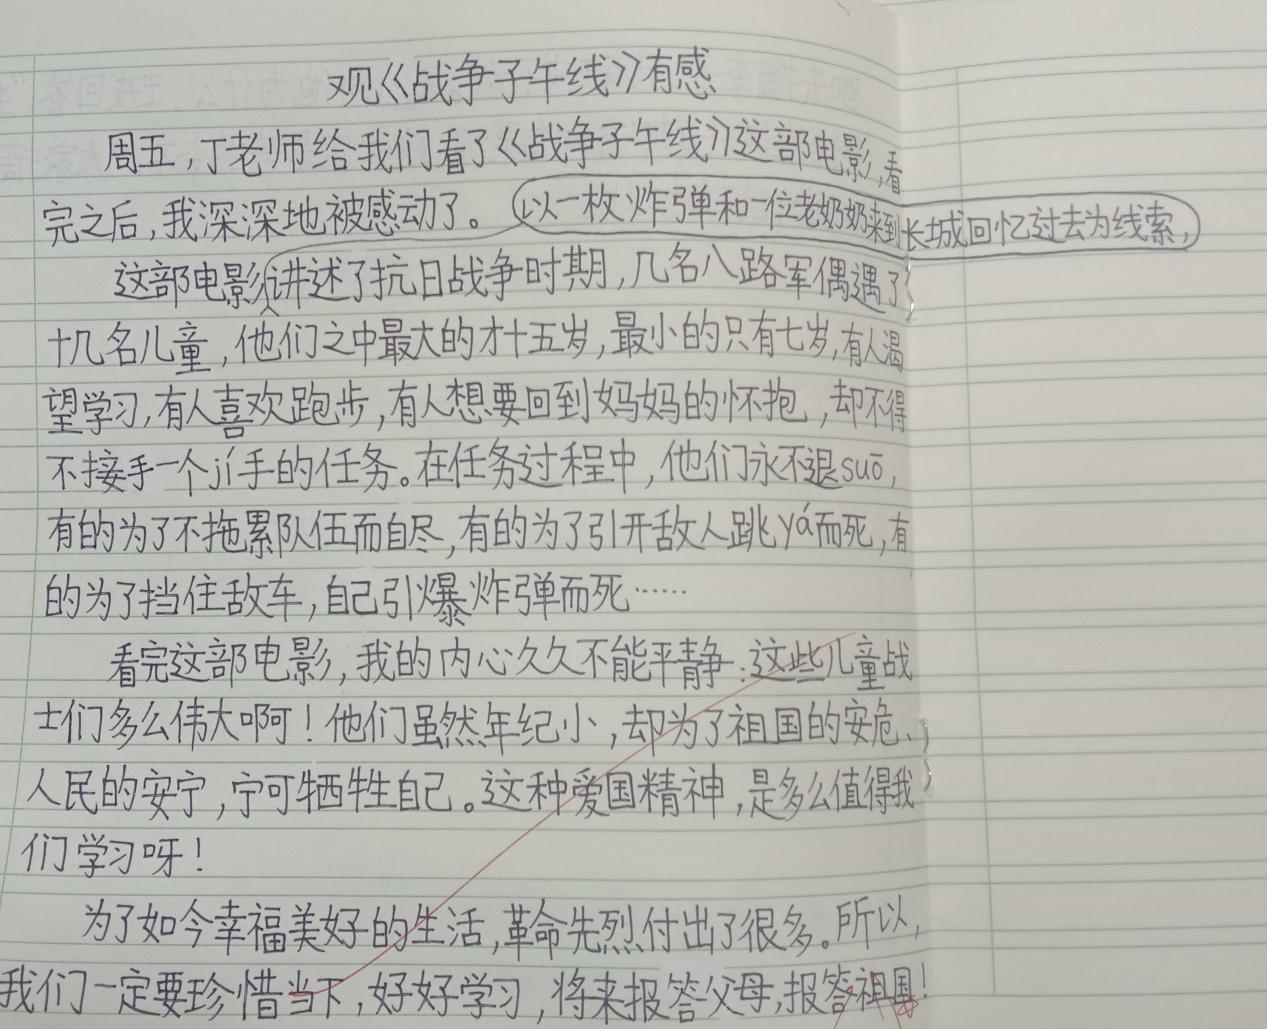 观《战争子午线》有感
周五,丁老师给我们看了《战争子午线》这部电影,看
完之后,我深深地被感动了。以一枚炸弹和一位老奶奶来到长城回忆过去为线索,
这部电影讲述了抗日战争时期,几名八路军偶遇了
十几名儿童,他们之中最大的才十五岁,最小的只有七岁,有人渴
望学习,有人喜欢跑步,有人想要回到妈妈的怀抱,却不得
不接手一个jí手的任务。在任务过程中,他们永不退suō,
有的为了不拖累队伍而自尽,有的为了引开敌人跳yá而死,有
的为了挡住敌车,自己引爆炸弹而死……
看完这部电影,我的内心久久不能平静:这些儿童战
士们多么伟大啊!他们虽然年纪小,却为了祖国的安危、
人民的安宁,宁可牺牲自己。这种爱国精神,是多么值得我
们学习呀!
为了如今幸福美好的生活,革命先烈付出了很多。所以,
我们一定要珍惜当下,好好学习,将来报答父母,报答祖国!